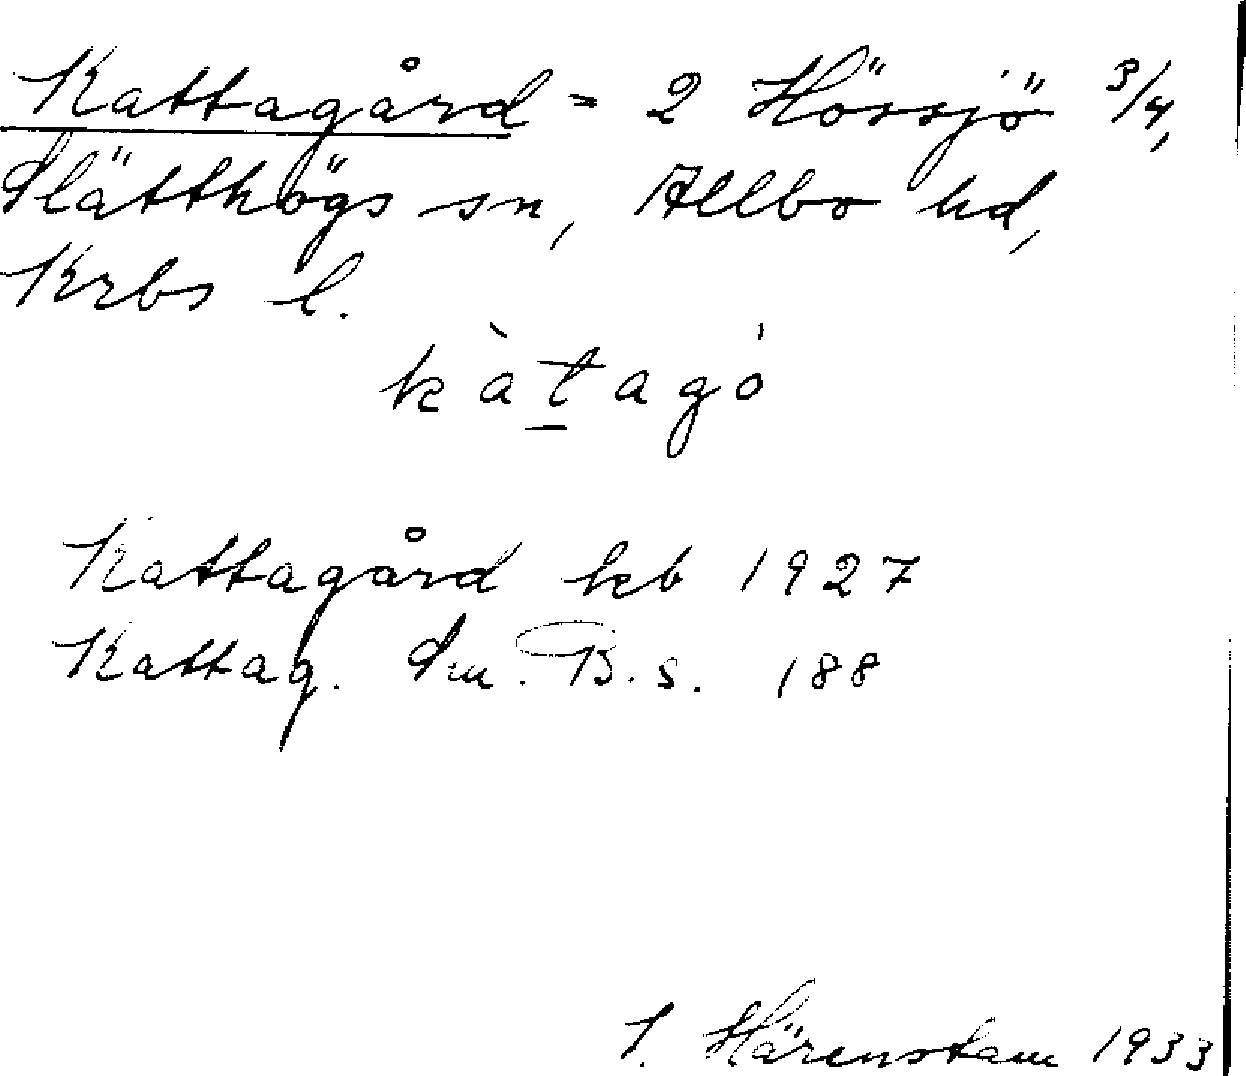 Kattagård = 2 Hössjö 3/4,
Slätthögs sn, Allbo hd,
Krbs l.
kàtagó
Kattagård kb 1927
Kattag. Sm. B. s. 188
J. Härenstam 1933